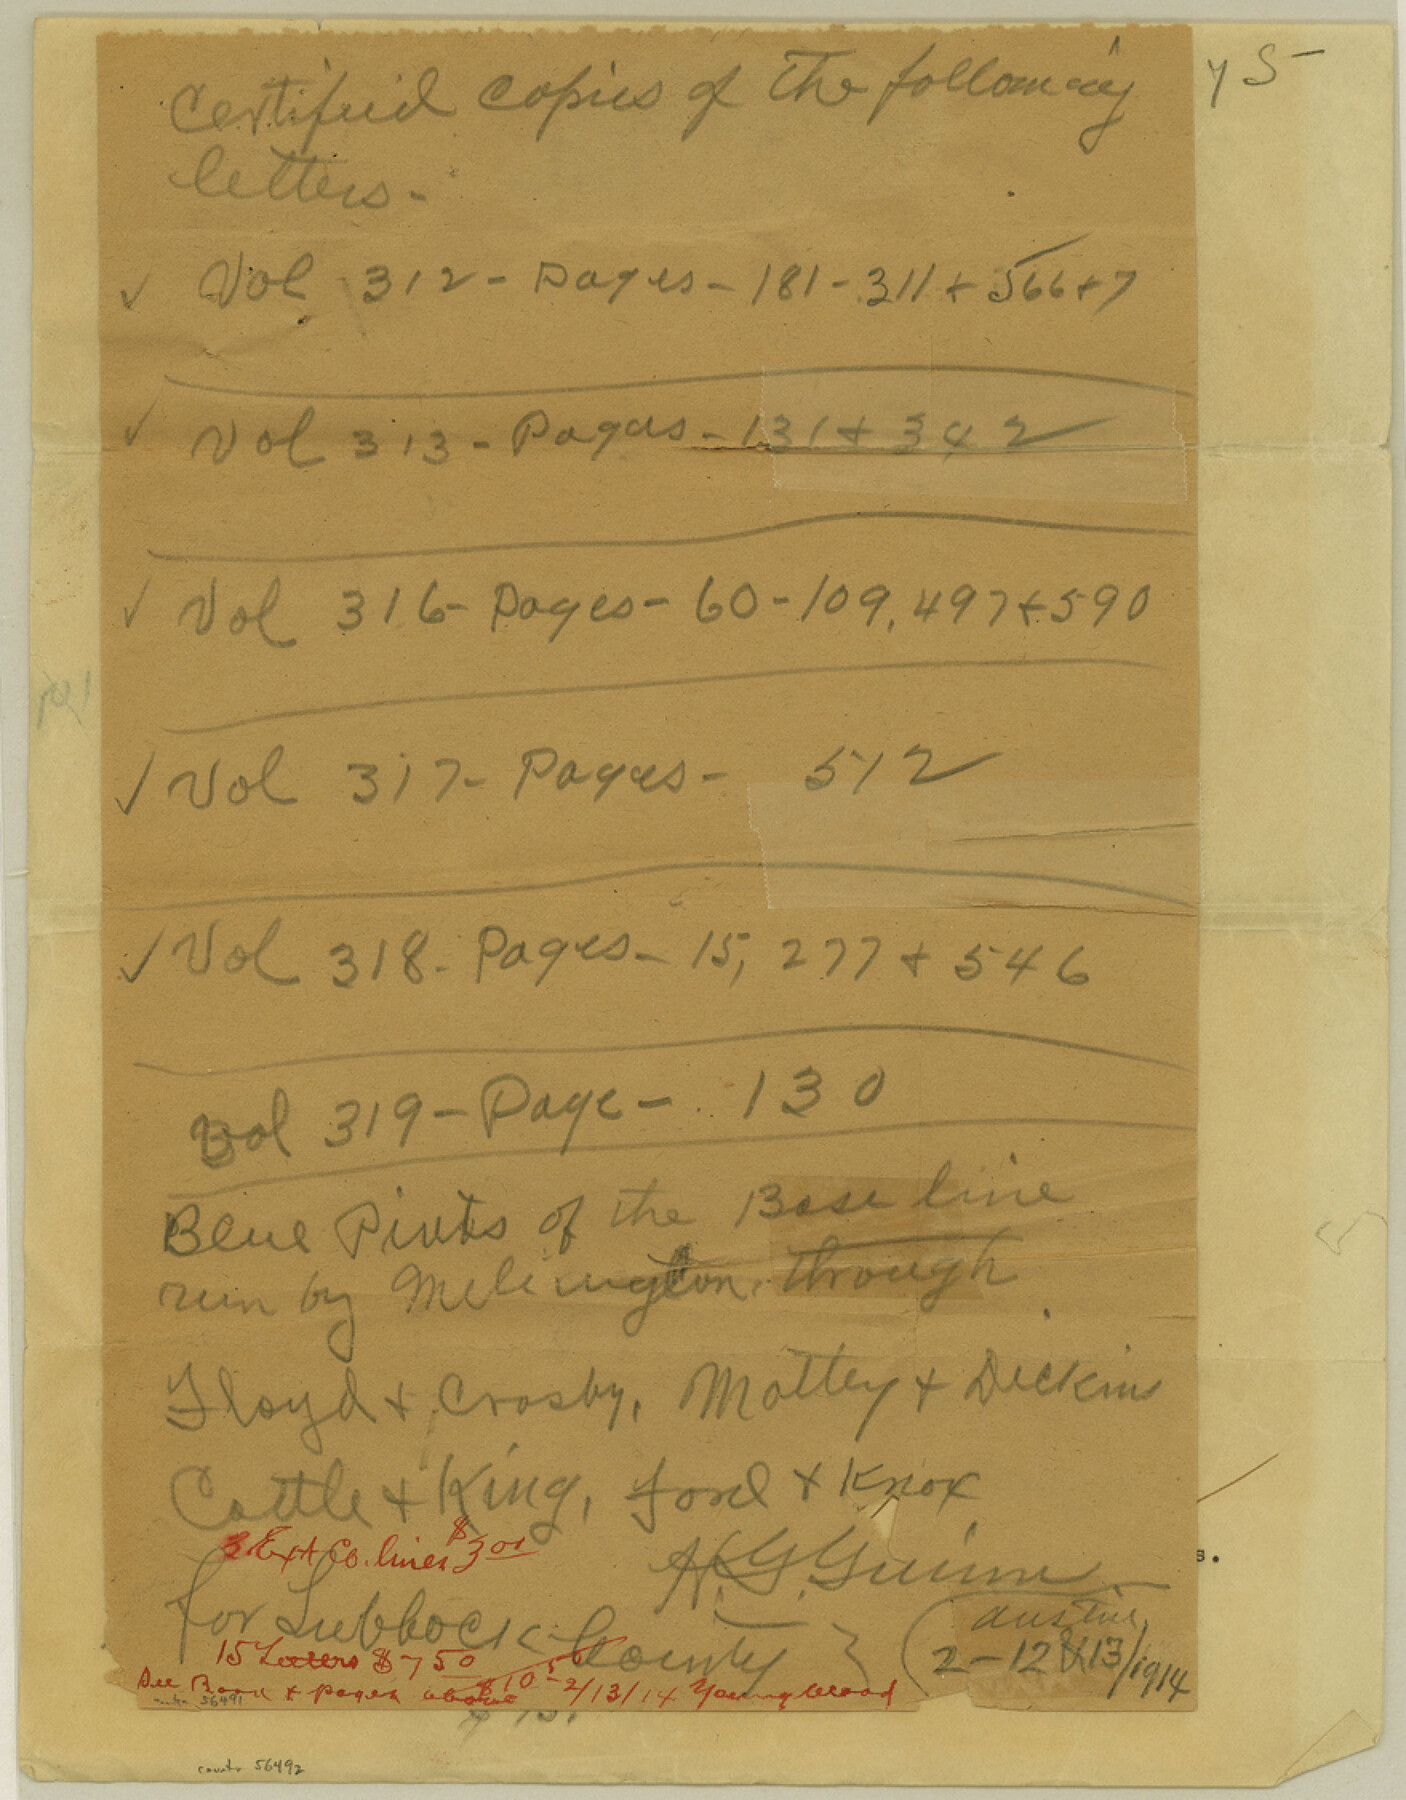 Certified copies of the following
letters-
✓ Vol 312- Pages- 181- 311 + 566+7
✓ Vol 313- Pages- 131 + 342
✓ Vol 316- Pages- 60-109, 497+590
✓ Vol 317- Pages- 512
✓ Vol 318- Pages- 15, 277 + 546
Vol 319- Page- 130
Blue Pints of the Base line
run by through
Floyd + Crosby, Motley + Dickins
Cottle + King, Ford + Knox
3 Ext Co. lines $3 00
for Lubbock County
15 Letters $7 50
See Book + pages above $10 50 2/13/14 Youngblood
Austin,
2-12 & 13/1914
56491
counter 56492